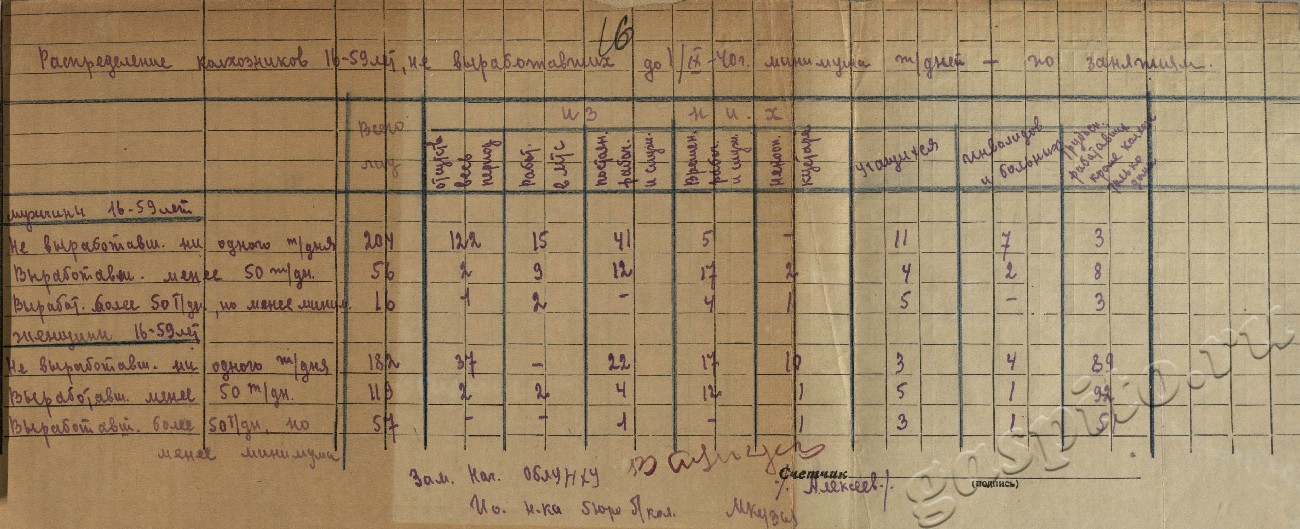 16
Распределение колхозников 16-59 лет, не выработавших до 1/IX-40г. минимума т/дней – по занятиям.
Всего лиц
из них
отсутств. весь период
работ. в МТС
постоян. рабоч. и служ.
Времен. рабоч. и служ.
кустаря
учащихся
инвалидов и больных
мужчины 16-59 лет
Не выработавш. ни одного т/дня 204 122 15 41 5 - 11 7 3
Выработавш. менее 50 т/дн. 56 2 9 12 17 2 4 2 8
Выработ. более 50 т/дн., но менее миним. 16 1 2 - 4 1 5 - 3
женщины 16-59 лет
Не выработавш. ни одного т/дня 182 37 - 22 17 10 3 4 89
Выработавш. менее 50 т/дн. 119 2 2 4 12 1 5 1 92
Выработавш. более 50 т/дн, но 57 - - 1 - 1 3 1 51
менее минимума
Зам. Нач. ОблУНХУ
Счетчик
/. Алексеев./.
(подпись)
И.о. н-ка бюро
gaspito.ru